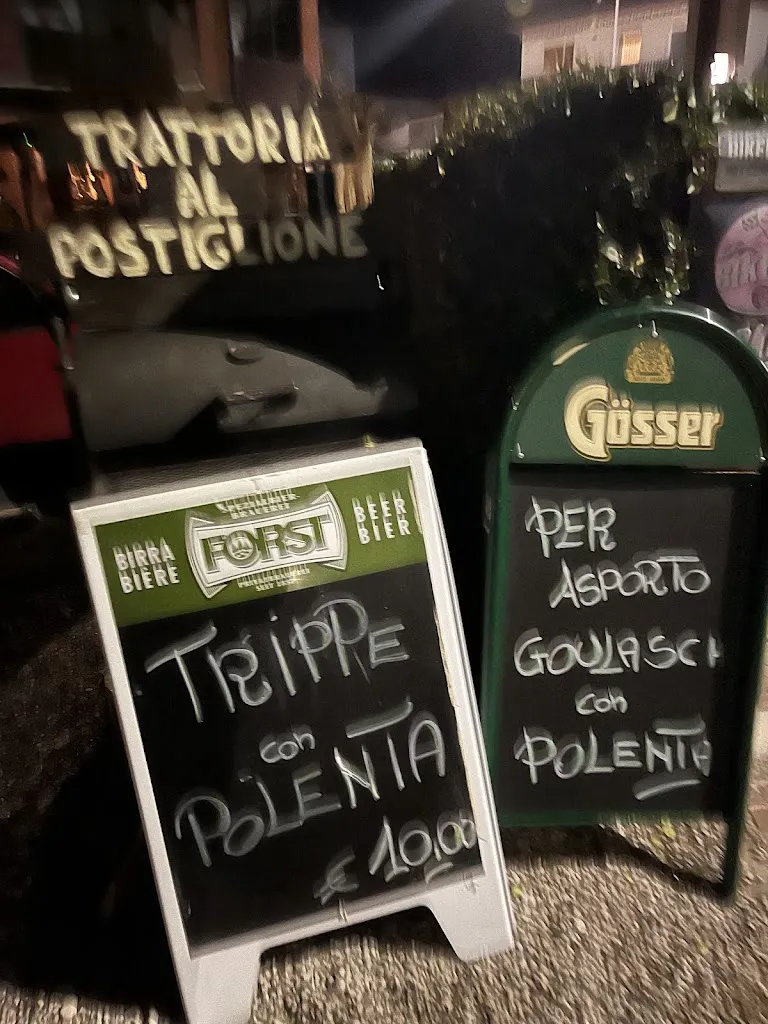 TRATTORIA
AL
POSTIGLIONE
FORST
BIRRA
BIERE
BEER
BIER
TRIPPE
con
POLENTA
€ 10,00
Gösser
PER
ASPORTO
GOULASCH
con
POLENTA